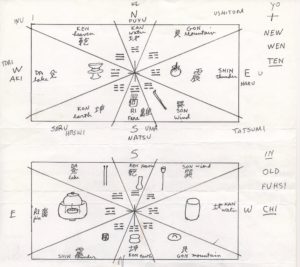 N
FUYU
INU I
USHITORA
YO
+
NEW
WEN
TEN
KEN
heaven
乾
KAN
water
坎
艮 GON
mountain
TORI
W AKI
DA
lake
SHIN
thunder
E U
HARU
KON
earth 坤
RI
fire
SON
wind
SARU
S UMA
NATSU
TATSUMI
S
IN
OLD
FUHSI
CHI
DA
lake
KEN heaven
SON wind
E
RI
KAN
water
W
SHIN thunder
KON earth
GON mountain
N